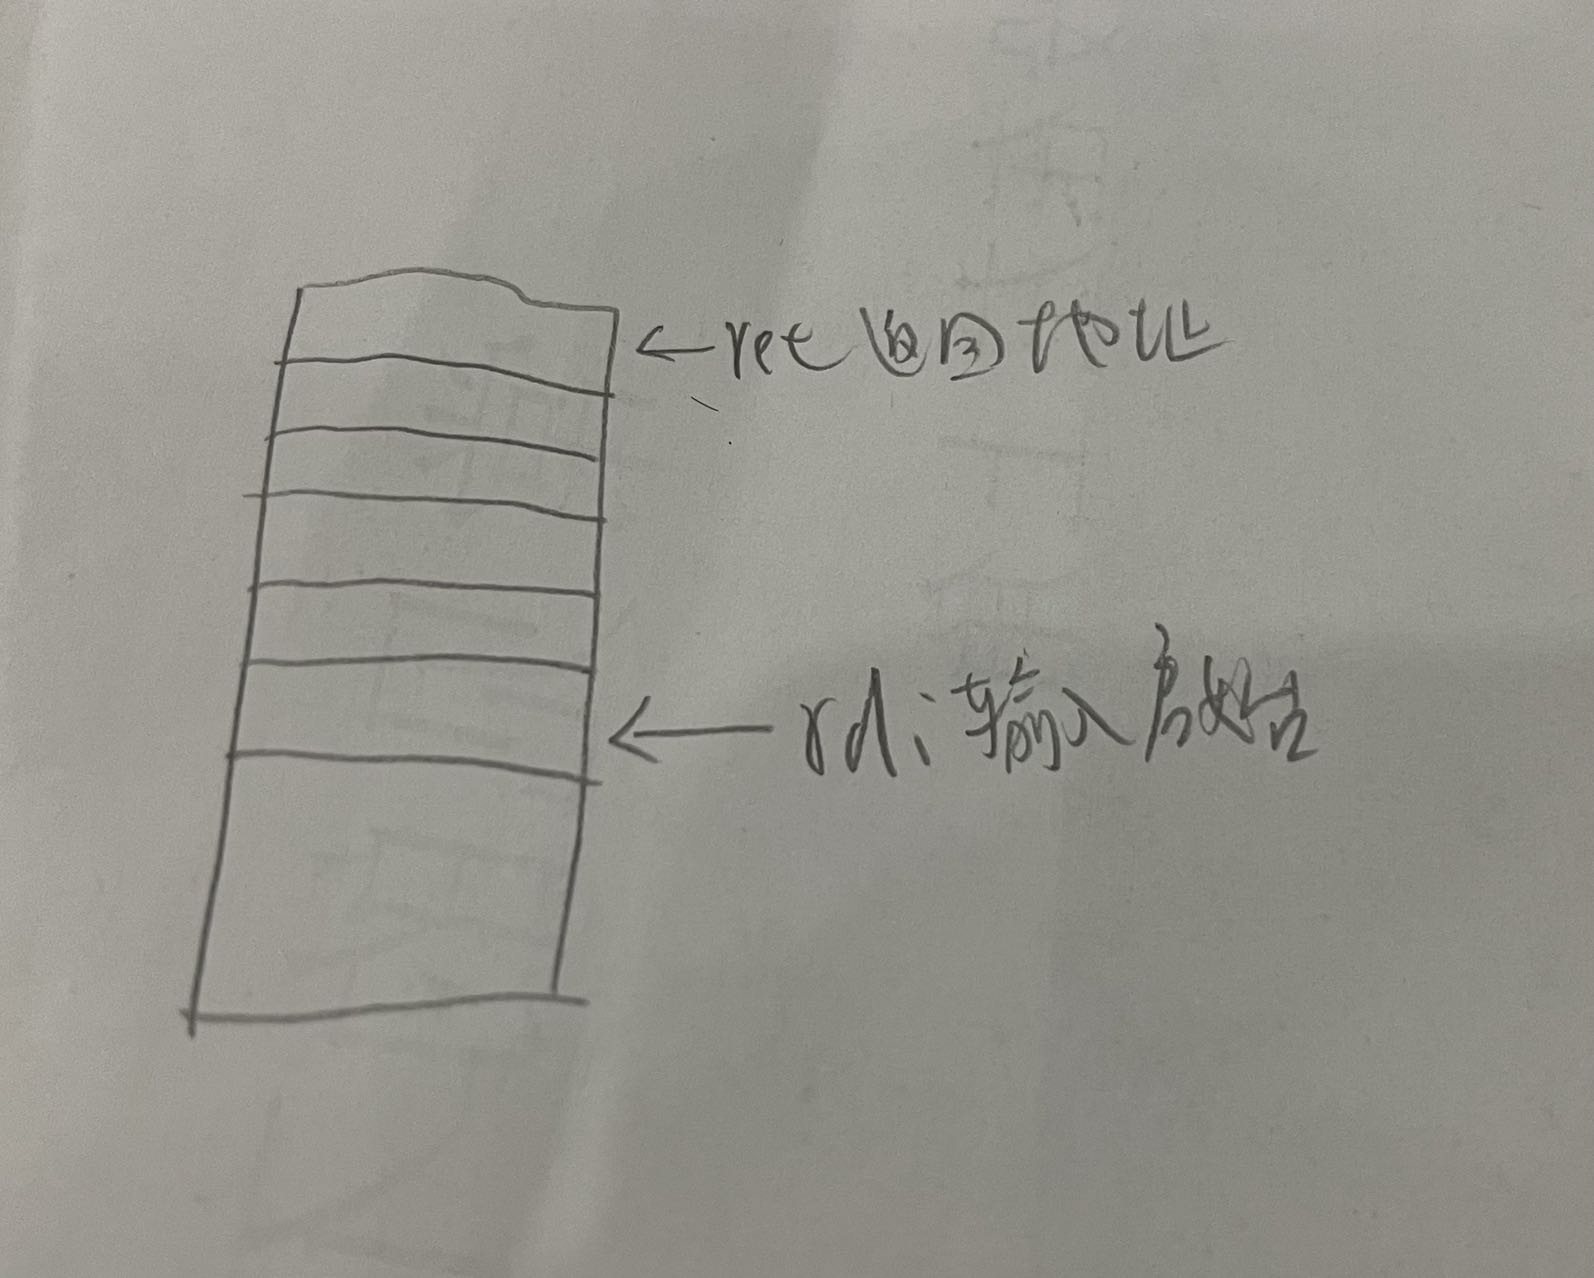 ←ret返回地址
←rdi输入启始点